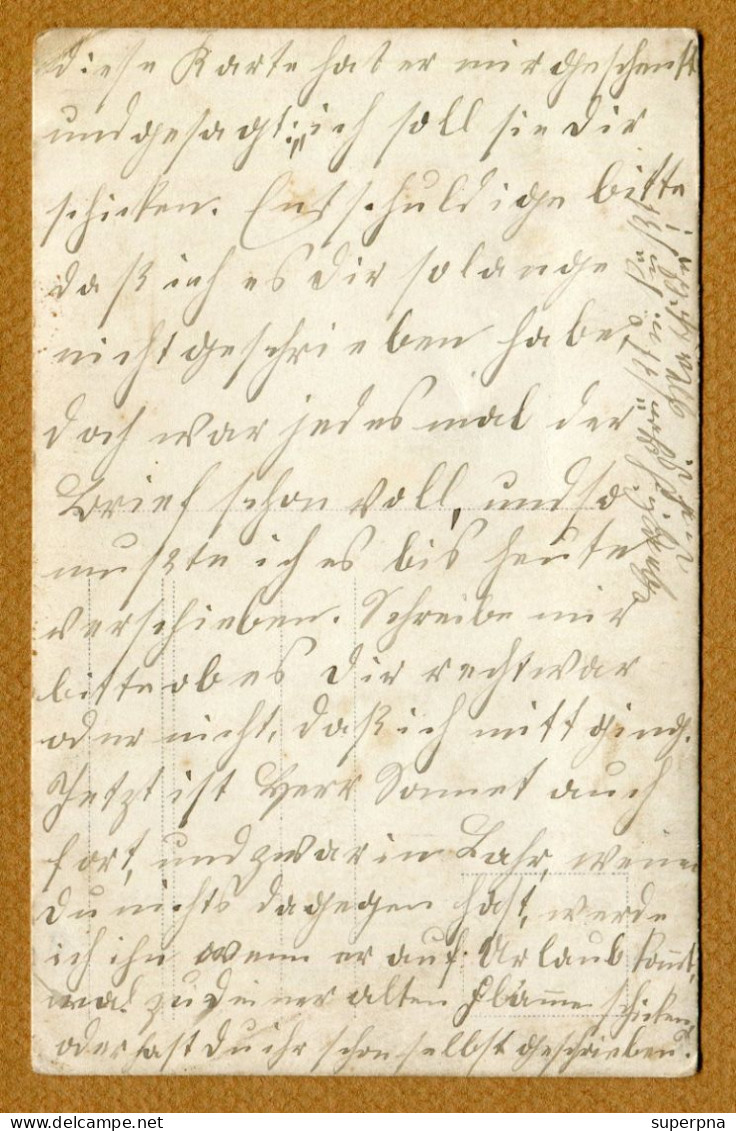 diese Karte hat er mir geschenkt
und gesagt: „ich soll sie dir
schicken. Entschuldige bitte
daß ich es Dir solange
nicht geschrieben habe,
doch war jedesmal der
Brief schon voll, und so
mußte ich es bis heute
verschieben. Schreibe mir
bitte ob es Dir recht war
oder nicht, daß ich mitt ging.
Jetzt ist Herr Sonnet auch
fort, und zwar in Lahr, wenn
Du nichts dagegen hast, werde
ich ihn wenn er auf Urlaub kommt,
mal zu deiner alten Flamme schicken
oder hast Du ihr schon selbst geschrieben?
superpna